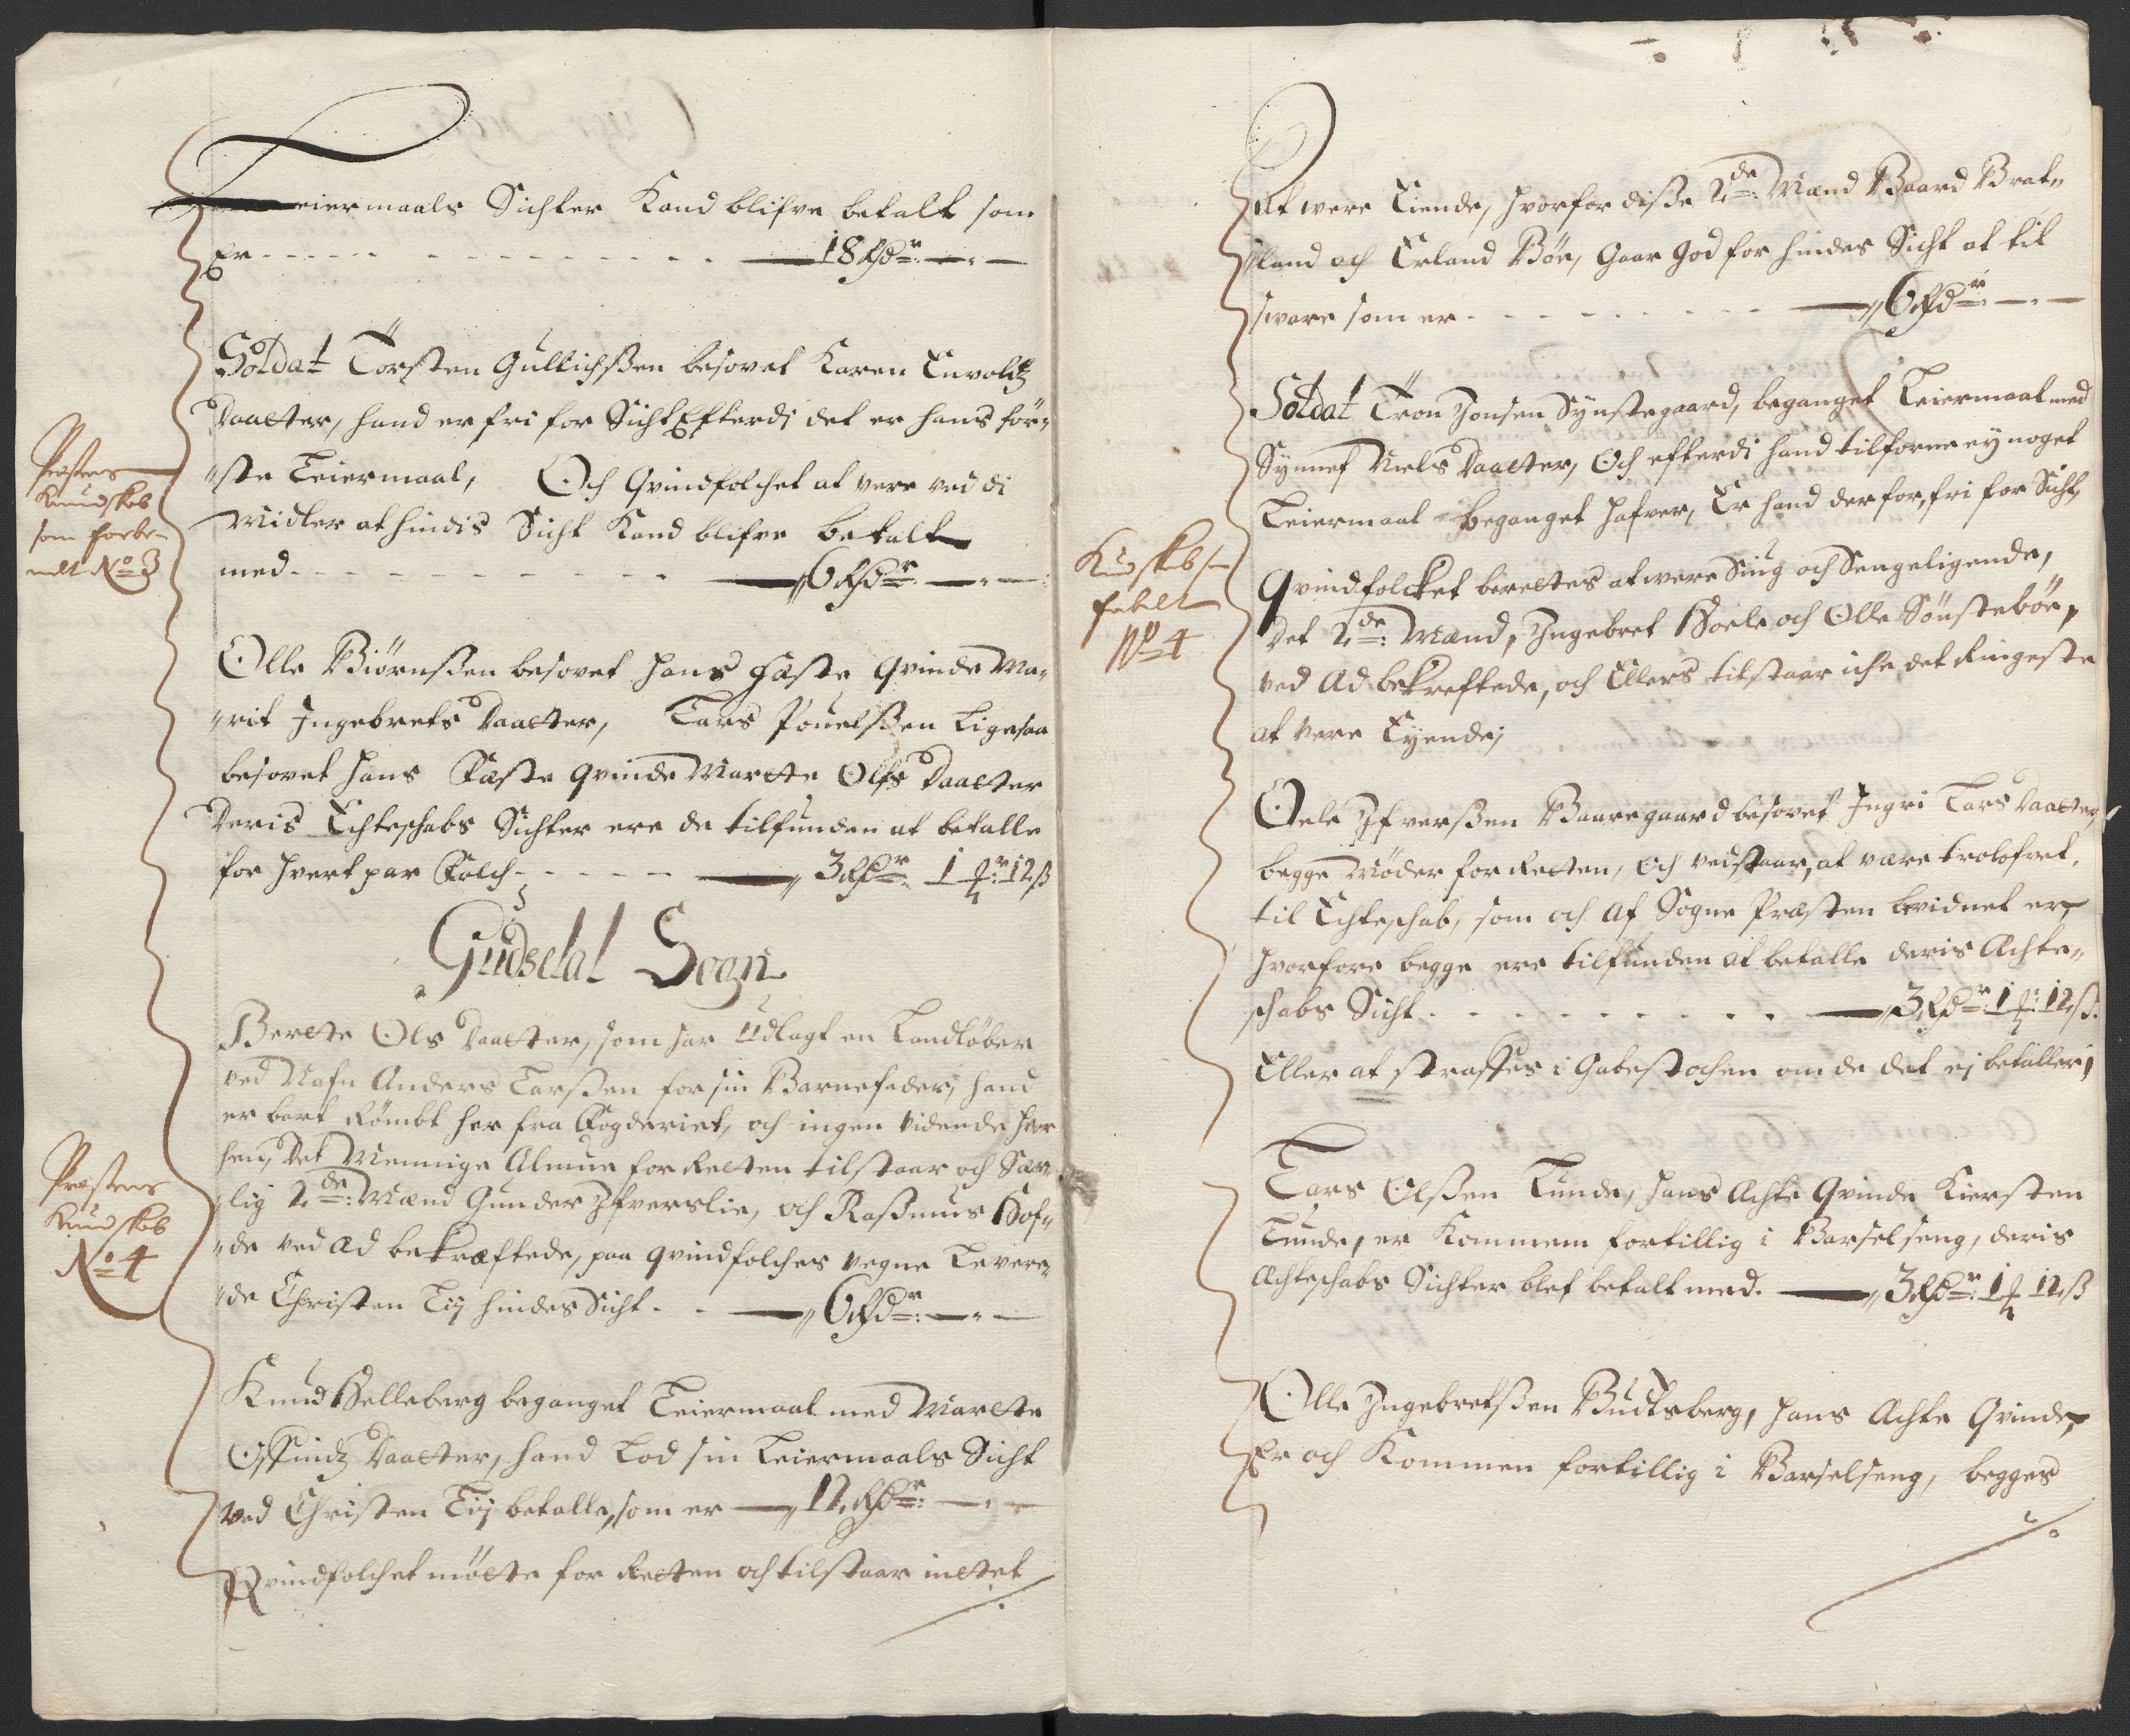 Leiermaals Sichter Kand blifve betalt som
Er - - - - - - - - - - 18 Rdr: — " —
Soldat Torsten Gullichsßen besovet Karen Envolds
Daatter, hand er fri for Sicht Efterdi det er hans før„
„ste Leiermaal, Och Qvindfolchet at vere ved di
Midler at hindis Sicht Kand blifve betalt
med - - - - - - - - - „6 Rdr: — " —
Præstens
Kundskob
som forbe-
melt No 3
Olle Biørnsßen besovet hans Fæste Qvinde Ma„
„rit Ingebrets Daatter, Lars Pouelsßen Ligesaa
besovet hans Fæste Qvinde Marete Olfs Daatter
Deris Echteschabs Sichter ere de tilfunden at betalle
for hvert par Folch - - - - - „ 3 Rdr: 1 ort: 12 ß
Gudsdal Sogn
Berete Ols Daatter, som har udlagt en Landløber
ved Nafn Anders Larsßen for sin Barnefader, hand
er bort Rømbt her fra Fogderiet, och ingen vidende hvor
hen, Det Mennige Almue for Retten tilstaar och Sær„
„lig 2de: Mænd Gunder Ifverslie, och Rasmus Hof„
„de ved æd bekræftede, paa qvindfolches vegne Levere„
„de Christen Lij hindes Sicht - - „ 6 Rdr: — " —
Præstens
Kundskob
No 4
Knud Helleberg beganget Leiermaal med Marete
Effindz Daatter, hand Lod sin Leiermaals Sicht
ved Christen Lij betalle, som er — „ 12 Rdr: — " —
Qvindfolchet møtte for Retten och tilstaar intet
at were Eiende, hvorfor disse 2de: Mænd Baard Brat„
„land och Erland Böe, gaar god for hindes Sicht at til
svare som er - - - - - - - - „ 6 Rdr: — " —
Soldat Tron Jonsen Synstegaard, beganget Leiermaal med
Synnef Niels Daatter, Och efterdi hand tilforne ey noget
Leiermaal beganget hafver, Er hand derfor, fri for Sicht,
Qvindfolcket berettes at were Siug och Sengeligende,
Det 2de: Mænd, Ingebret Hoele och Olle Sönstebøe,
ved Æd bekreftede, och Ellers tilstaar iche det Ringeste
at vere Eyende,
Kundskob
No 4
Oele Ifversßen Baaregaard besovet Ingri Lars Daatter,
begge Møder for Retten, Och vedstaar, at være trolofvet,
til Echteschab, som och af Sogne Præsten beviidnet er,
hvorfore begge ere tilfunden at betalle deris Achte„
schabs Sicht - - - - - - - - „ 3 Rdr: 1 ort: 12 ß.
Eller at straffes i Gabestochen om de det ej betaller,
Lars Olsßen Lunde, hans Achte Qvinde Kiersten
Lunde, er Kommem fortillig i Barselseng, deris
Achteschabs Sichter blef betalt med. — „ 3 Rdr: 1 ort 12 ß
Olle Ingebretsßen Bucksberg, hans Achte Qvinde,
Er och Kommen fortillig i Barselseng, begges